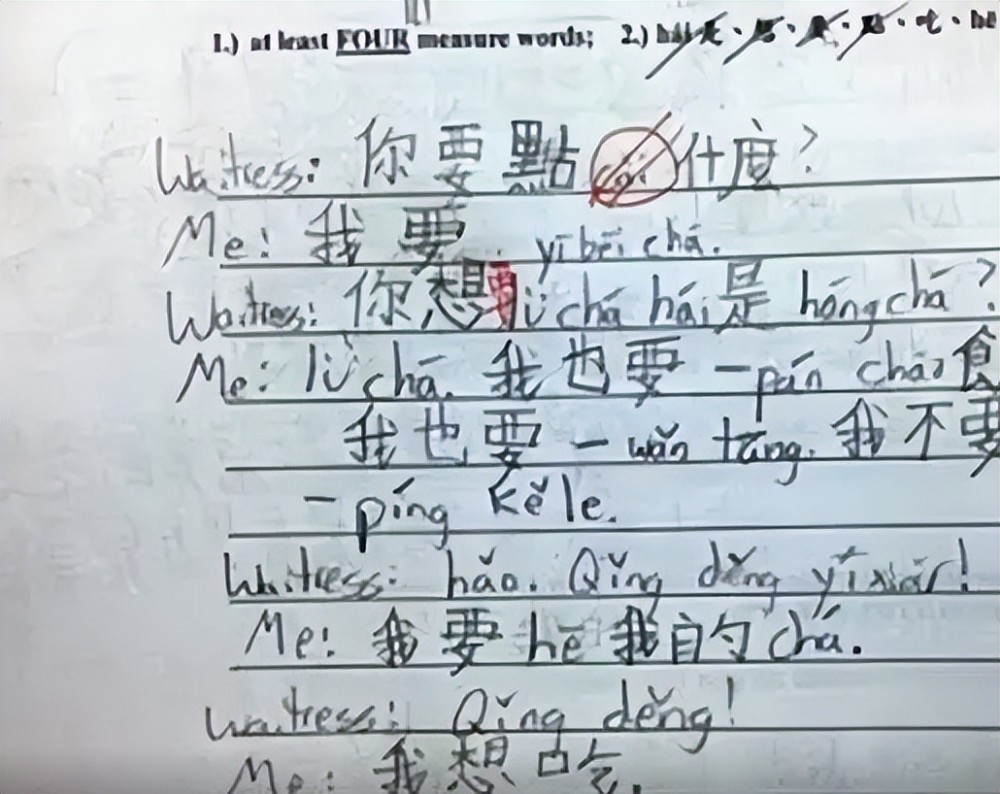 1.) at least FOUR measure words; 2.) hái是、想、要、點、吃、hē
Waitress: 你要點什度?
Me: 我要 yī bēi chá.
Waitress: 你想要lǜ chá hái是 hóng chá?
Me: lǜ chá. 我也要一pán chǎo
我也要一wǎn tāng. 我不要
一píng kě le.
Waitress: hǎo. Qǐng děng yī xiàr!
Me: 我要 hē 我的 chá.
Waitress: Qǐng děng!
Me: 我想吃.